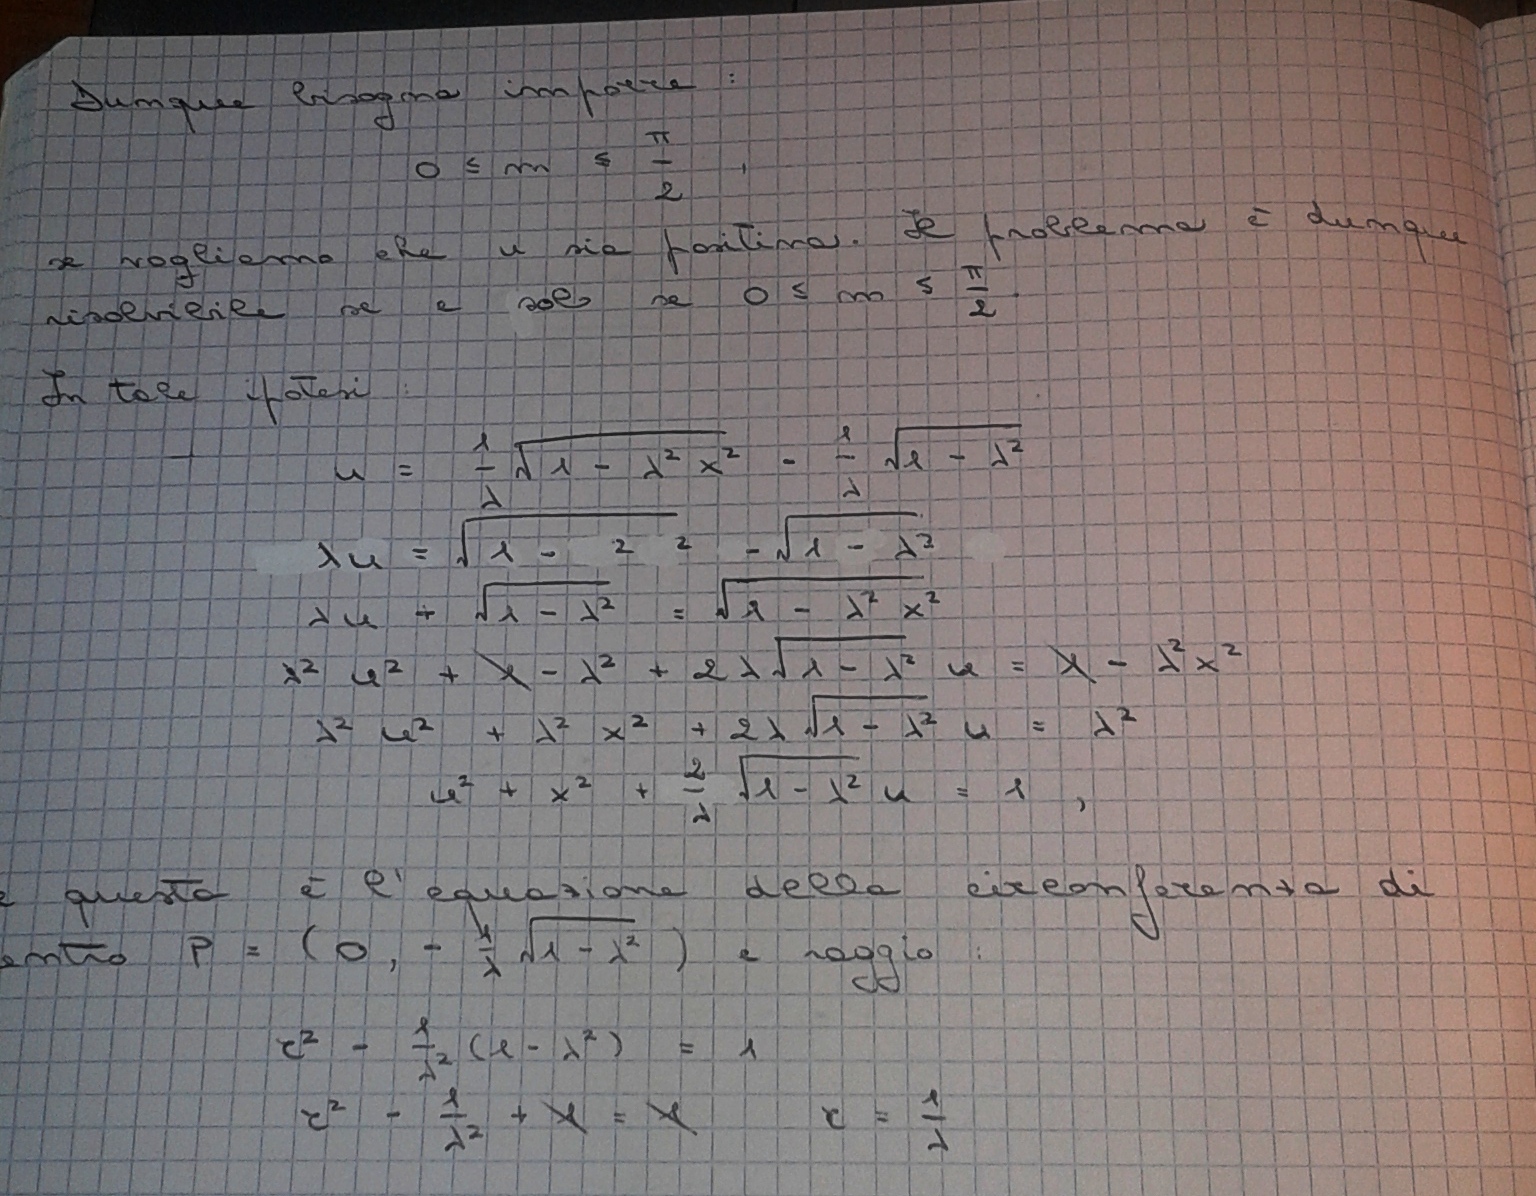 Dunque bisogna imporre :
0 ≤ m ≤ π/2 ,
se vogliamo che u sia positiva. Il problema è dunque
risolvibile se e solo se 0 ≤ m ≤ π/2.
In tale ipotesi :
u = 1/λ √(1 - λ² x²) - 1/λ √(1 - λ²)
λu = √(1 - ² ²) - √(1 - λ²)
λu + √(1 - λ²) = √(1 - λ² x²)
λ² u² + 1 - λ² + 2λ √(1 - λ²) u = 1 - λ² x²
λ² u² + λ² x² + 2λ √(1 - λ²) u = λ²
u² + x² + 2/λ √(1 - λ²) u = 1 ,
e questa è l'equazione della circonferenza di
entro P = (0, - 1/λ √(1 - λ²)) e raggio :
r² - 1/λ² (1 - λ²) = 1
r² - 1/λ² + 1 = 1 r = 1/λ